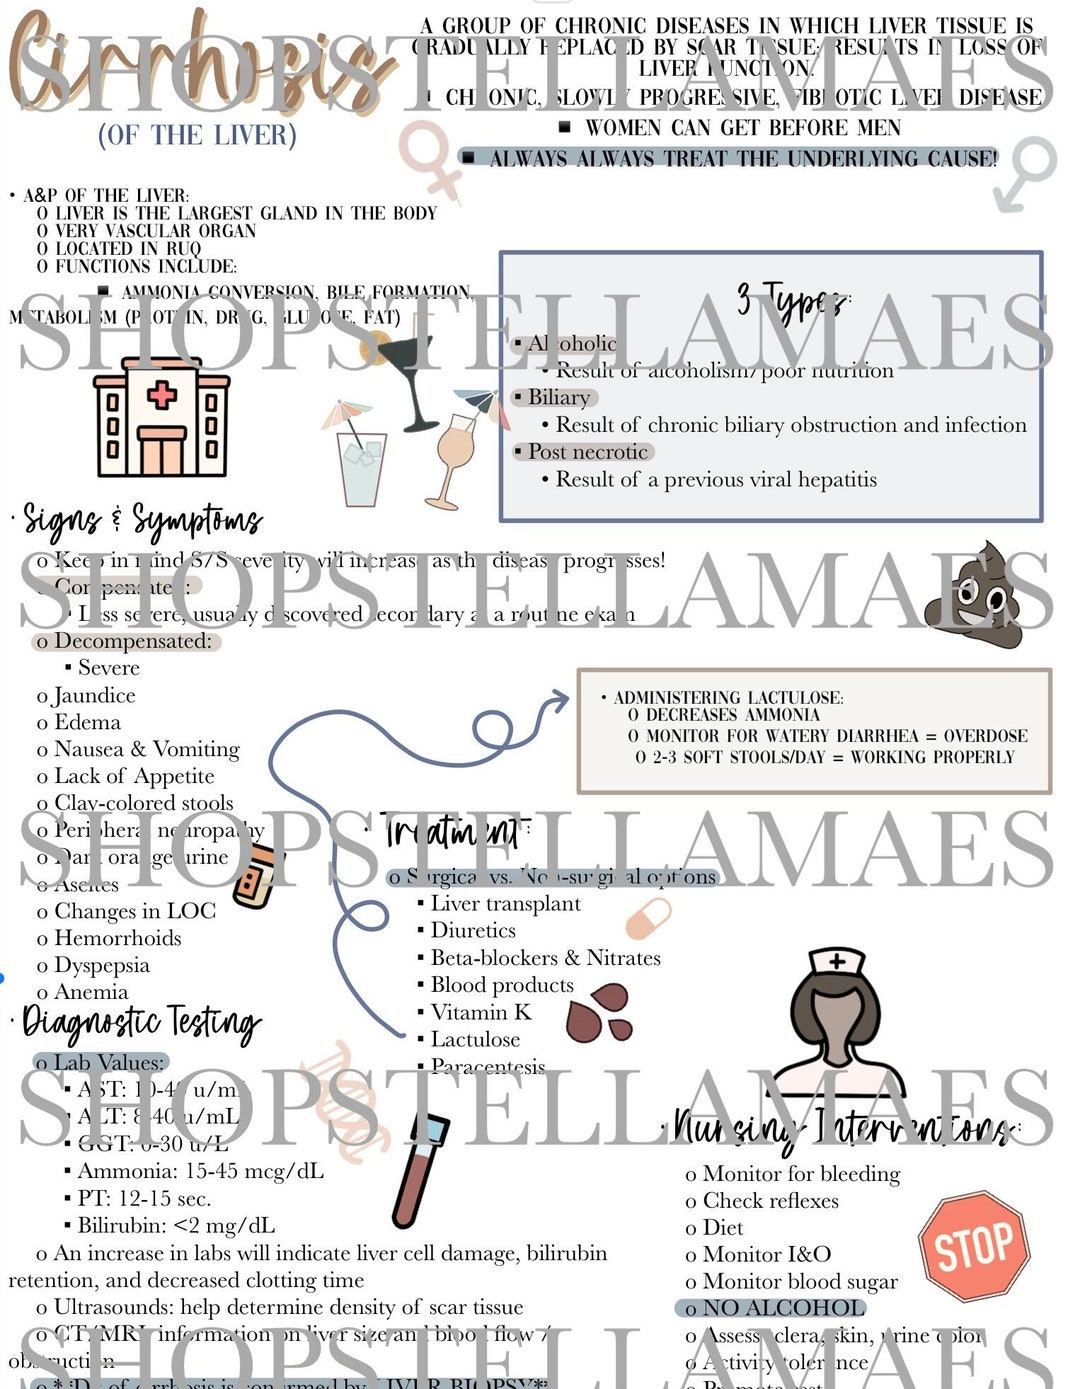 Cirrhosis
(OF THE LIVER)
A GROUP OF CHRONIC DISEASES IN WHICH LIVER TISSUE IS
GRADUALLY REPLACED BY SCAR TISSUE; RESULTS IN LOSS OF
LIVER FUNCTION.
SHOPSTELLAMAES
▪ CHRONIC, SLOWLY PROGRESSIVE, FIBROTIC LIVER DISEASE
▪ WOMEN CAN GET BEFORE MEN
▪ ALWAYS ALWAYS TREAT THE UNDERLYING CAUSE!
• A&P OF THE LIVER:
O LIVER IS THE LARGEST GLAND IN THE BODY
O VERY VASCULAR ORGAN
O LOCATED IN RUQ
O FUNCTIONS INCLUDE:
▪ AMMONIA CONVERSION, BILE FORMATION,
METABOLISM (PROTEIN, DRUG, GLUCOSE, FAT)
SHOPSTELLAMAES
3 Types:
▪ Alcoholic
• Result of alcoholism/poor nutrition
▪ Biliary
• Result of chronic biliary obstruction and infection
▪ Post necrotic
• Result of a previous viral hepatitis
· Signs & Symptoms
o Keep in mind S/S severity will increase as the disease progresses!
SHOPSTELLAMAES
o Compensated:
▪ Less severe, usually discovered secondary at a routine exam
o Decompensated:
▪ Severe
o Jaundice
o Edema
o Nausea & Vomiting
o Lack of Appetite
o Clay-colored stools
o Peripheral neuropathy
o Dark orange urine
o Ascites
o Changes in LOC
o Hemorrhoids
o Dyspepsia
o Anemia
• ADMINISTERING LACTULOSE:
O DECREASES AMMONIA
O MONITOR FOR WATERY DIARRHEA = OVERDOSE
O 2-3 SOFT STOOLS/DAY = WORKING PROPERLY
SHOPSTELLAMAES
· Treatment:
o Surgical vs. Non-surgical options
▪ Liver transplant
▪ Diuretics
▪ Beta-blockers & Nitrates
▪ Blood products
▪ Vitamin K
▪ Lactulose
▪ Paracentesis
· Diagnostic Testing
o Lab Values:
▪ AST: 10-40 u/mL
SHOPSTELLAMAES
▪ ALT: 8-40 u/mL
▪ GGT: 0-30 u/L
▪ Ammonia: 15-45 mcg/dL
▪ PT: 12-15 sec.
▪ Bilirubin: <2 mg/dL
o An increase in labs will indicate liver cell damage, bilirubin
retention, and decreased clotting time
o Ultrasounds: help determine density of scar tissue
o CT/MRI: information on liver size and blood flow /
obstruction
o **Dx of cirrhosis is confirmed by LIVER BIOPSY**
· Nursing Interventions:
o Monitor for bleeding
o Check reflexes
o Diet
o Monitor I&O
o Monitor blood sugar
o NO ALCOHOL
o Assess sclera, skin, urine color
o Activity tolerance
o Promote rest
STOP
SHOPSTELLAMAES